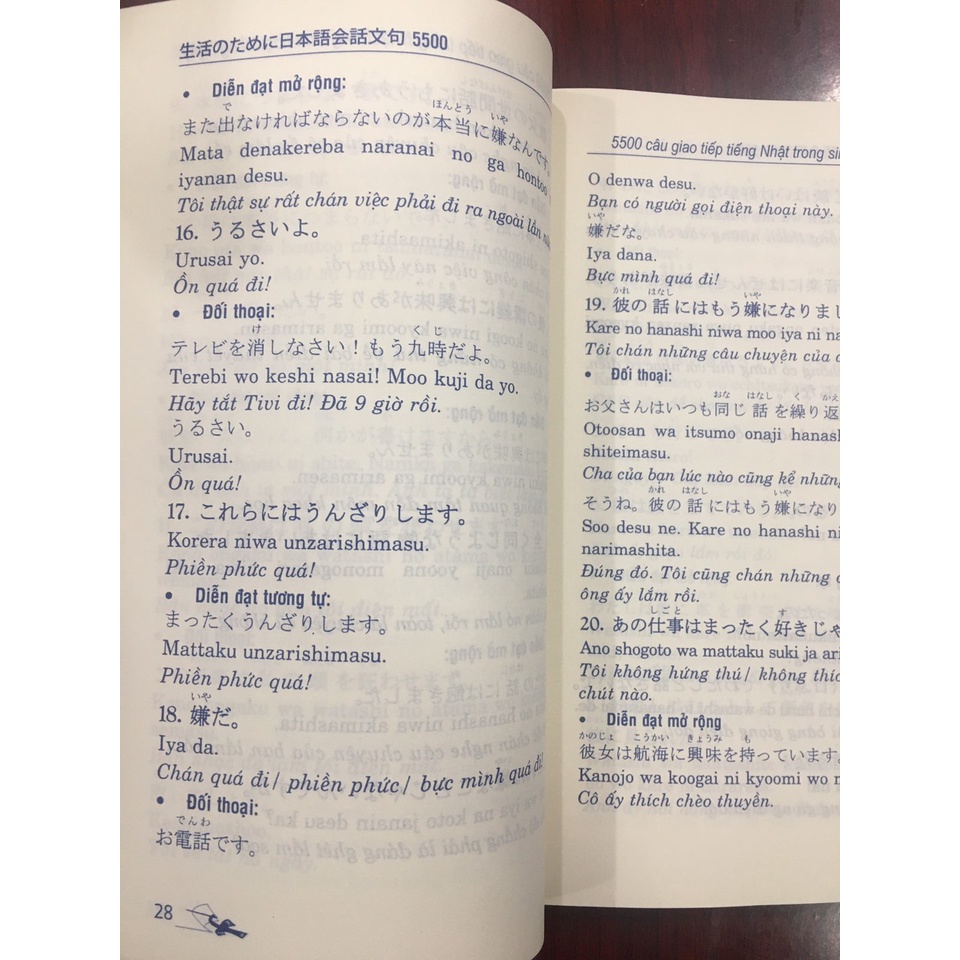 生活のために日本語会話文句 5500
• Diễn đạt mở rộng:
で ほんとう いや
また出なければならないのが本当に嫌なんです。
Mata denakereba naranai no ga hontoo
iyanan desu.
Tôi thật sự rất chán việc phải đi ra ngoài lần
16. うるさいよ。
Urusai yo.
Ồn quá đi!
• Đối thoại:
け くじ
テレビを消しなさい！もう九時だよ。
Terebi wo keshi nasai! Moo kuji da yo.
Hãy tắt Tivi đi! Đã 9 giờ rồi.
うるさい。
Urusai.
Ồn quá!
17. これらにはうんざりします。
Korera niwa unzarishimasu.
Phiền phức quá!
• Diễn đạt tương tự:
まったくうんざりします。
Mattaku unzarishimasu.
Phiền phức quá!
いや
18. 嫌だ。
Iya da.
Chán quá đi/ phiền phức/ bực mình quá đi!
• Đối thoại:
でんわ
お電話です。
28
5500 câu giao tiếp tiếng Nhật trong
O denwa desu.
Bạn có người gọi điện thoại này.
いや
嫌だな。
Iya dana.
Bực mình quá đi!
かれ はなし いや
19. 彼の話にはもう嫌になりまし
Kare no hanashi niwa moo iya ni
Tôi chán những câu chuyện của
• Đối thoại:
おな はなし く かえ
お父さんはいつも同じ話を繰り返
Otoosan wa itsumo onaji hanash
shiteimasu.
Cha của bạn lúc nào cũng kể những
かれ はなし いや
そうね。彼の話にはもう嫌になり
Soo desu ne. Kare no hanashi ni
narimashita.
Đúng đó. Tôi cũng chán những
ông ấy lắm rồi.
しごと す
20. あの仕事はまったく好きじゃ
Ano shogoto wa mattaku suki ja ari
Tôi không hứng thú/ không thíc
chút nào.
• Diễn đạt mở rộng
かのじょ こうかい きょうみ も
彼女は航海に興味を持っています。
Kanojo wa koogai ni kyoomi wo
Cô ấy thích chèo thuyền.